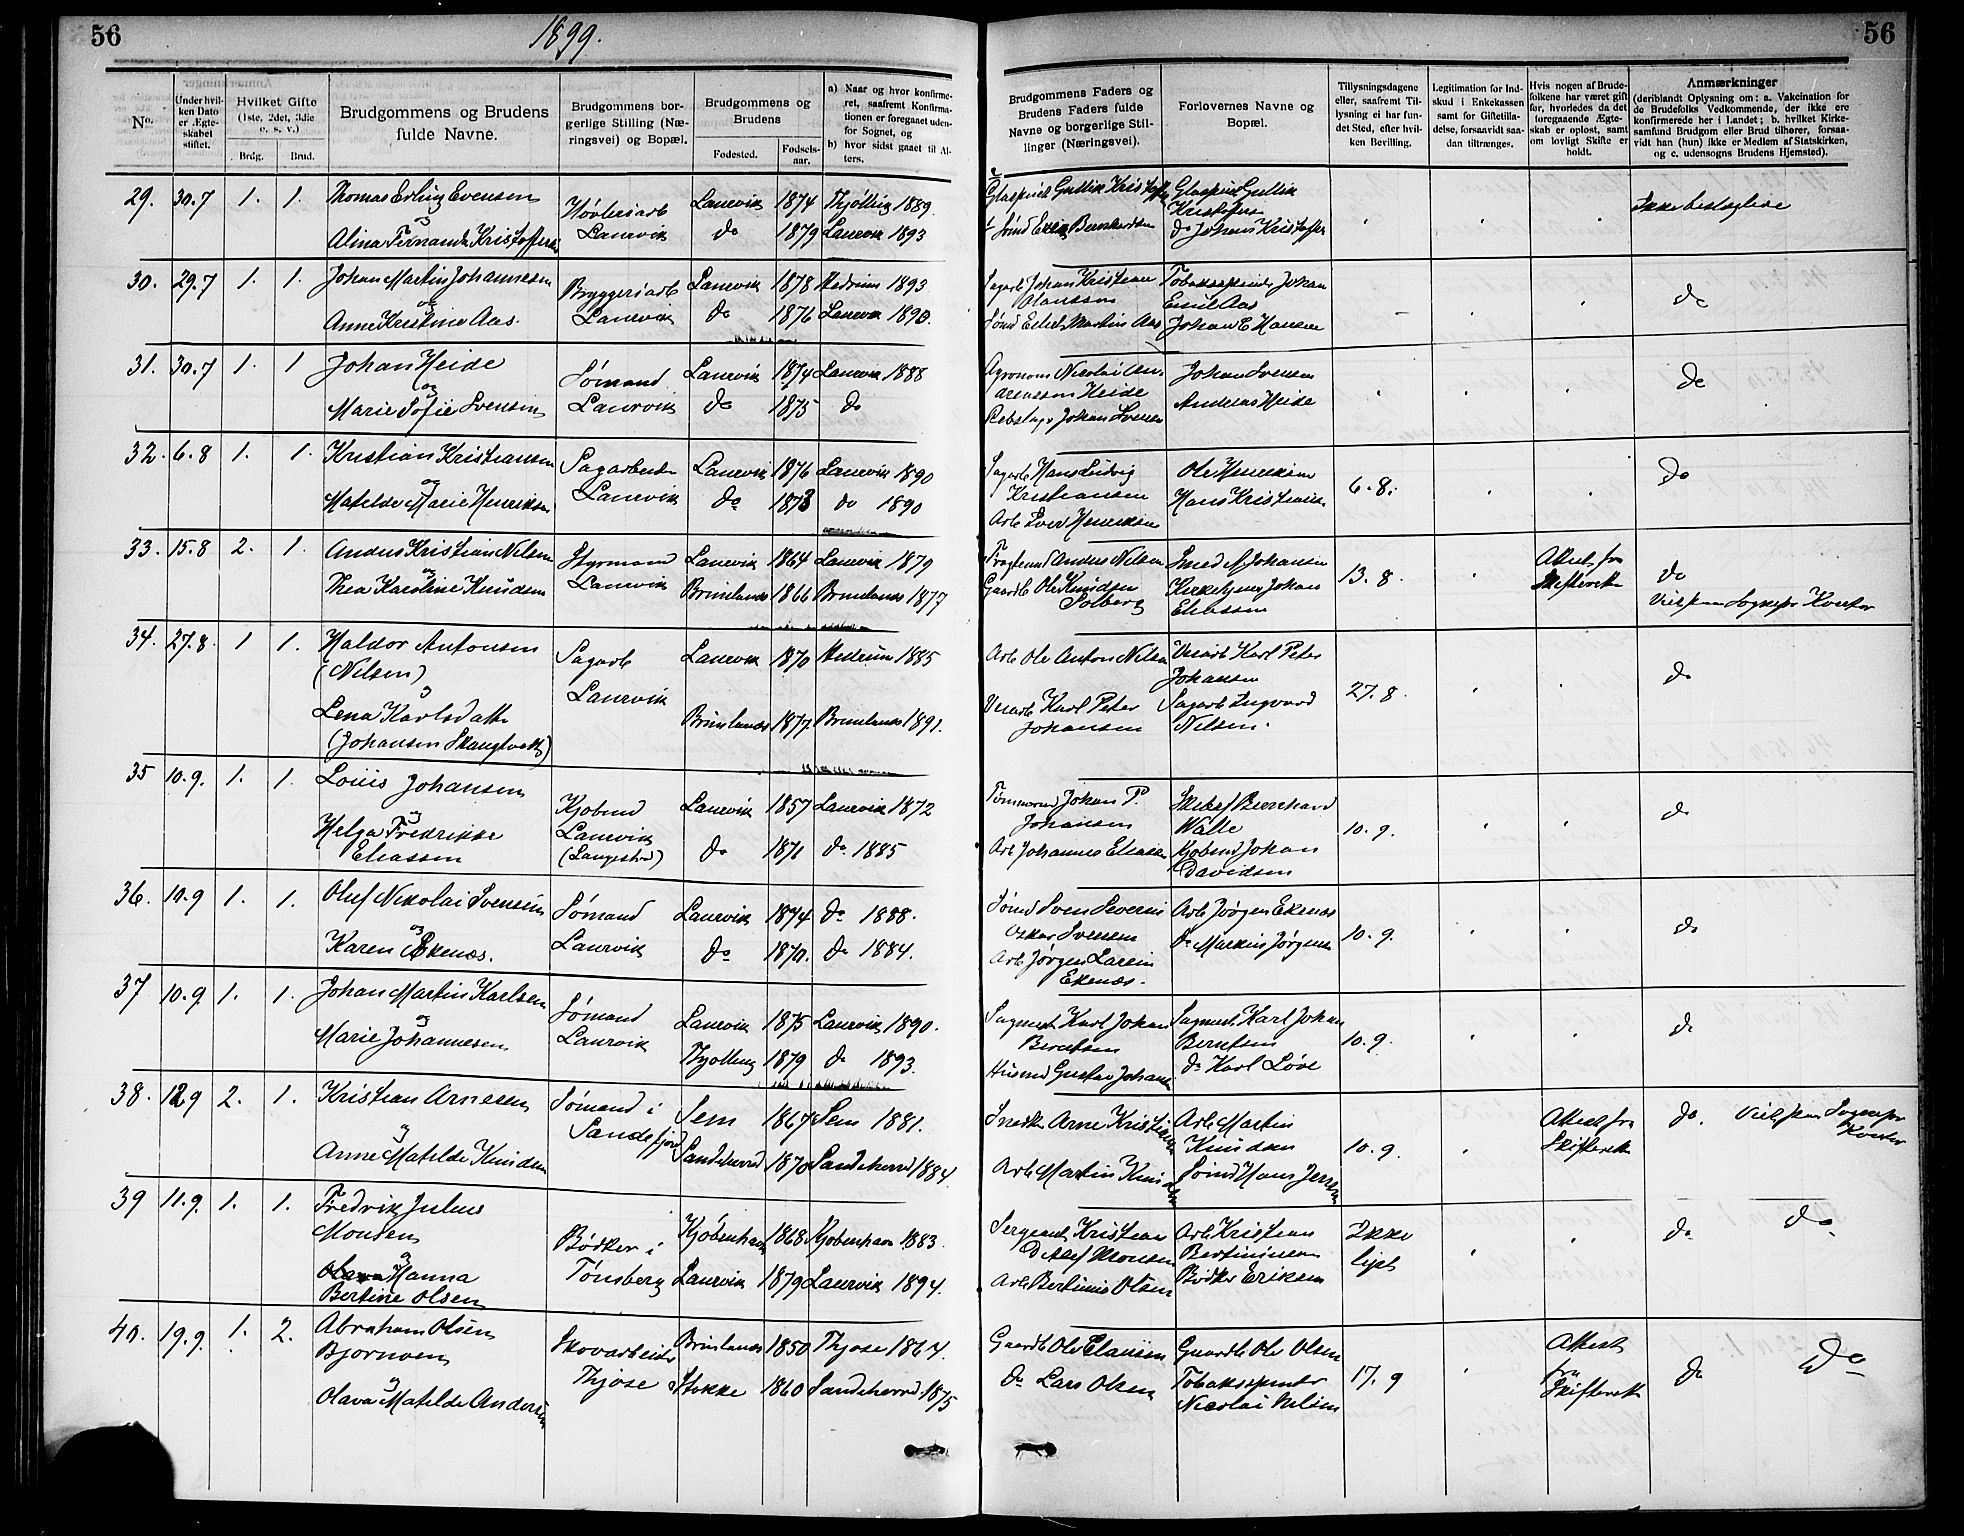 56
1899.
56
No.
Under hvilken Dato er Ægteskabet stiftet.
Hvilket Gifte (1ste, 2det, 3die o. s. v.)
Brdg.
Brud.
Brudgommens og Brudens fulde Navne.
Brudgommens borgerlige Stilling (Næringsvei) og Bopæl.
Brudgommens og Brudens
Fødested.
Fødselsaar.
a) Naar og hvor konfirmeret, saafremt Konfirmationen er foregaaet udenfor Sognet, og
b) hvor sidst gaaet til Alters.
Brudgommens Faders og Brudens Faders fulde Navne og borgerlige Stillinger (Næringsvei).
Forlovernes Navne og Bopæl.
Tillysningsdagene eller, saafremt Tillysning ei har fundet Sted, efter hvilken Bevilling.
Legitimation for Indskud i Enkekassen samt for Giftetilladelse, forsaavidt saadan tiltrænges.
Hvis nogen af Brudefolkene har været gift før, hvorledes da det foregaaende Ægteskab er opløst, samt om lovligt Skifte er holdt.
Anmærkninger
(deriblandt Oplysning om: a. Vakcination for de Brudefolks Vedkommende, der ikke ere konfirmerede her i Landet; b. hvilket Kirkesamfund Brudgom eller Brud tilhører, forsaavidt han (hun) ikke er Medlem af Statskirken, og c. udensogns Brudens Hjemsted).
29. 30.7 1. 1. Thomas Erling Evensen
og
Alina Fernanda Kristoffersen
Høvleriarb Laurvik
Laurvik 1874 Thjølling 1889.
do 1879 Laurvik 1893
Gullik Kristoffer
Sømd Bernhardsen
Gullik
Kristofers
do Johans Kristoffer
Ikke beslægtede
30. 29.7 1. 1. Johan Martin Johannesen
og
Anne Kristine Aas.
Bryggeriarb Laurvik
Laurvik 1878 Hedrum 1893
do 1876 Laurvik 1890.
Sagarb Johan Kristian
Olaussen
Sømd Martin Aas
Johan
Emil Aas
Johan E Hansen
do
31. 30.7 1. 1 Johan Heide
og
Marie Sofie Svensen
Sømand Laurvik
Laurvik 1874 Laurvik 1888
do 1875 do
Agronom Nicolai
Heide
Johan Svensen
Johan Svensen
Andreas Heide
do
32. 6.8 1. 1. Kristian Kristiansen
og
Matilde Marie Henriksen
Sagarbeider Laurvik
Laurvik 1876 Laurvik 1890
do 1873 do 1890
Sagarb Hans Ludvig
Kristiansen
Arb Iver Henriksen
Ole Henriksen
Hans Kristians.
6.8.
do
33. 15.8 2. 1. Anders Kristian Nilsen
og
Thea Karoline Knudsen
Styrmand Laurvik
Laurvik 1864 Laurvik 1879
Brunlanes 1866 Brunlanes 1877
Anders Nilsen
Gaardb Ole Knudsen
Solberg
Smed Johansen
Johan
Eliassen
13.8.
Attest fra
Skifteret
do
Viet paa Sognepr Kontor
34. 27.8. 1 1. Haldor Antonsen
(Nilsen)
og
Lena Karlsdatter
Sagarb
Laurvik
Laurvik 1870 Hedrum 1885
Brunlanes 1877. Brunlanes 1891.
Arb Ole Anton Nilsen
Karl Peter
Johansen
Karl Peter
Johansen
Sagarb Ingvard
Nilsen.
27.8.
do
35 10.9. 1. 1. Louis Johansen
og
Helga Fredrikke
Eliassen
Kjøbmd
Laurvik
(Langestrand)
Laurvik 1857 Laurvik 1872
do 1871 do 1885
Tømmermd Johan P.
Johansen
Arb Johannes Eliassen
Bernhard
Walle
Kjøbmd Johan
Davidsen
10.9.
do
36. 10.9 1. 1. Oluf Nikolai Svensen
og
Karen Ekenæs.
Sømand
Laurvik
Laurvik 1874. do 1888.
do 1870. do 1884.
Sømd Sven Severin
Oskar Svensen
Arb Jørgen Larsen
Ekenæs.
Arb Jørgen Ekenæs
do Markus Jørgens
10.9.
do
37 10.9. 1. 1. Johan Martin Karlsen
og
Marie Johannesen
Sømand
Laurvik
Laurvik 1875 Laurvik 1890.
Thjølling 1879 do 1893.
Sagmest. Karl Johan
Berntsen
Husmd Gustav Johans
Sagmest. Karl Johan
Berntsen
do Karl Løve
10.9.
do
38. 12.9 2. 1. Kristian Arnesen
og
Anne Matilde Knudsen
Sømand i
Sandefjord
Sem 1867 Sem 1881.
Sandeherred 1870 Sandeherred 1884.
Snedk Arne Kristiansen
Arb Martin Knudsen
Arb Martin
Knudsen
Sømd Hans Jensen
10.9.
Attest fra
Skifteret
do. Viet paa Sognepr
Kontor
39 11.9. 1. 1. Fredrik Julius
Monsen
og
Hanna
Bertine Olsen
Bødker i
Tønsberg
Kjøbenhavn 1868 Kjøbenhavn 1883.
Laurvik 1879 Laurvik 1894.
Sergeant Kristian
Detlef Monsen
Arb Bertinius Olsen
Arb Kristian
Bertiniussen
Bødker Eriksen
Ikke
lyst
do do
40. 19.9. 1. 2. Abraham Olsen
Bjørnøen
og
Olava Matilde Andersen
Skovarbeider
Thjøse
Brunlanes 1850 Thjøse 1864.
Stokke 1860 Sandeherred 1875
Gaardb Ole Clausen
do Lars Olsen
Gaardb Ole Olsen
Tobaksspinder
Nicolai Nilsen
17.9
Attest
fra
Skifteret
do do